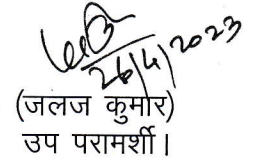 26/4/2023
(जलज कुमार)
उप परामर्शी।